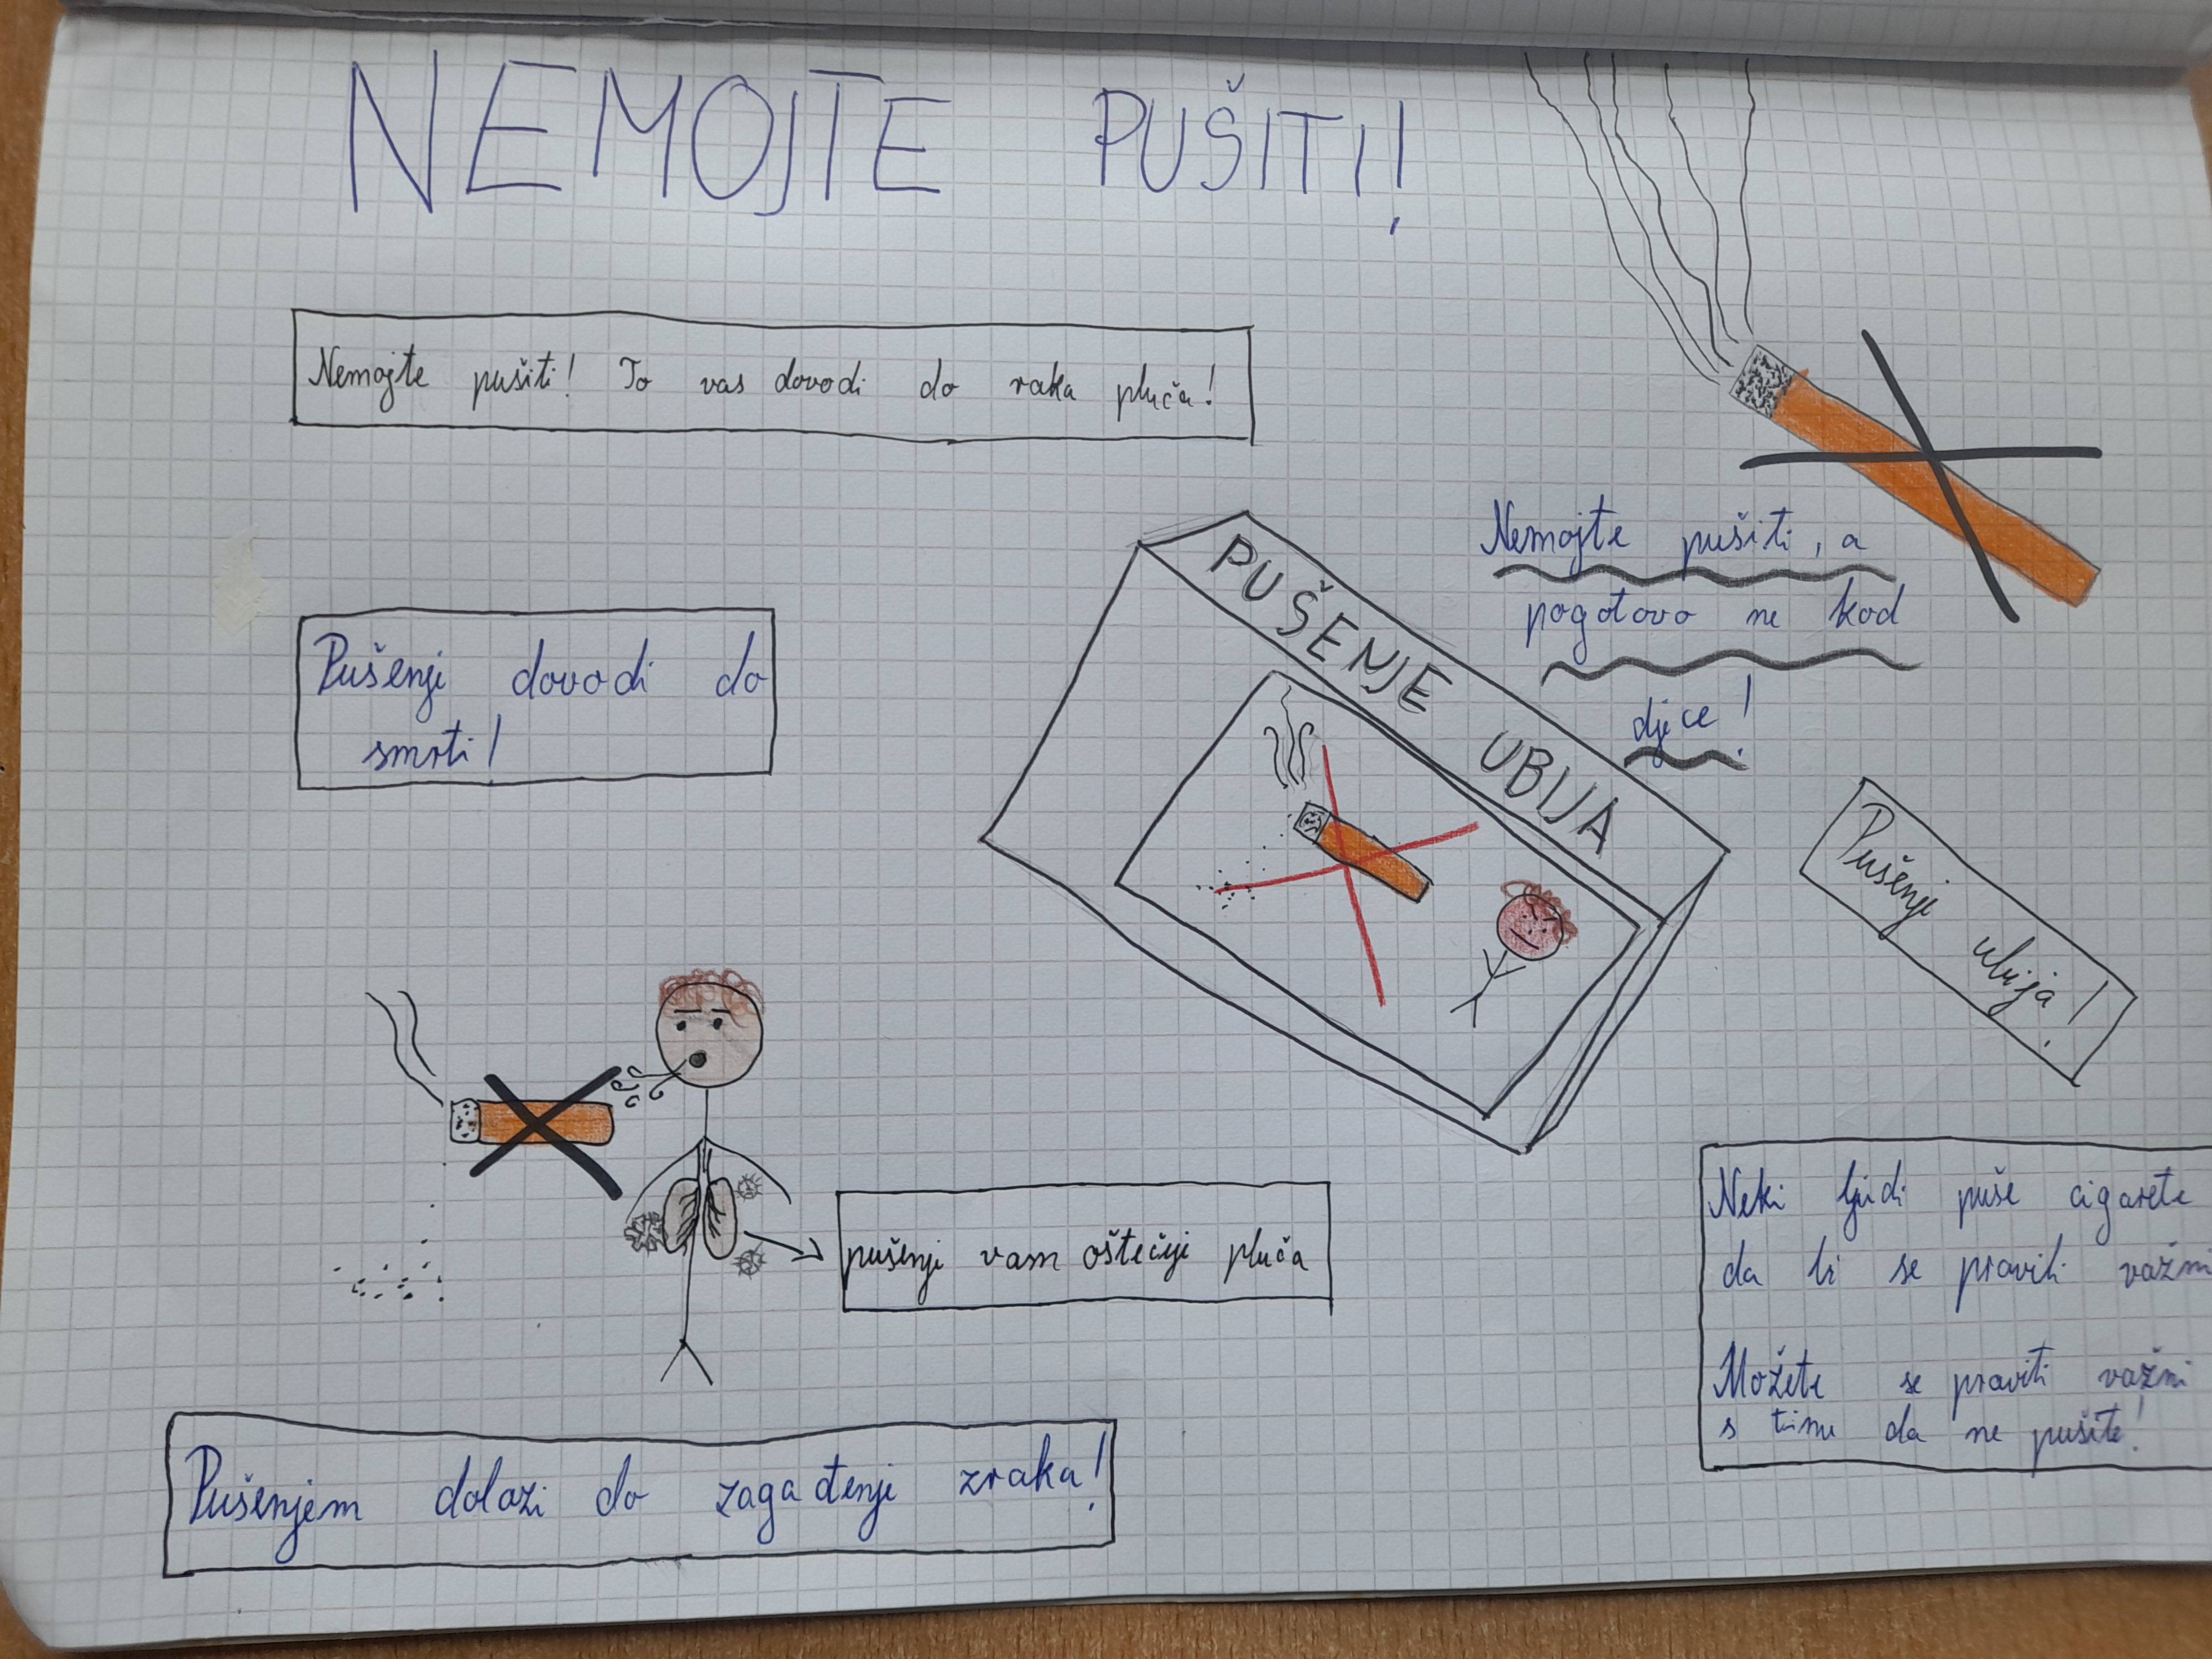 NEMOJTE PUŠITI!
Nemojte pušiti! To vas dovodi do raka pluča!
Nemojte pušiti, a
pogotovo ne kod
djece!
PUŠENJE UBIJA
Pušenje dovodi do
smrti!
Pušenje ubija!
pušenje vam oštečuje pluča
Neki ljudi puše cigarete
da bi se pravili važni
Možete se praviti važni
s time da ne pušite!
Pušenjem dolazi do zagađenje zraka!